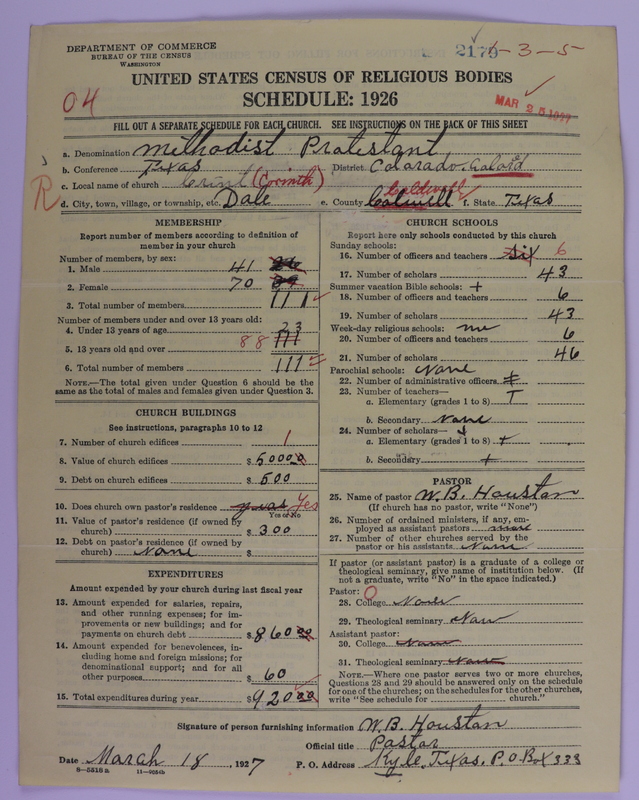 DEPARTMENT OF COMMERCE
BUREAU OF THE CENSUS
WASHINGTON
2179 1-3-5
UNITED STATES CENSUS OF RELIGIOUS BODIES
SCHEDULE: 1926
04
MAR 2 5 1927
FILL OUT A SEPARATE SCHEDULE FOR EACH CHURCH. SEE INSTRUCTIONS ON THE BACK OF THIS SHEET
a. Denomination Methodist Protestant
b. Conference Texas District Colorado. Colord
R
c. Local name of church (Corinth) Caldwell
d. City, town, village, or township, etc. Dale e. County Calwell f. State Texas
MEMBERSHIP
Report number of members according to definition of member in your church
Number of members, by sex:
1. Male 41
2. Female 70
3. Total number of members 111
Number of members under and over 13 years old:
4. Under 13 years of age 23
5. 13 years old and over 88 111
6. Total number of members 111
NOTE.—The total given under Question 6 should be
same as the total of males and females given under Question 3.
CHURCH BUILDINGS
See instructions, paragraphs 10 to 12
7. Number of church edifices 1
8. Value of church edifices $ 50000
9. Debt on church edifices $ 500
10. Does church own pastor's residence Yes
Yes or No
11. Value of pastor's residence (if owned by
church) $ 300
12. Debt on pastor's residence (if owned by
church) None $
EXPENDITURES
Amount expended by your church during last fiscal year
13. Amount expended for salaries, repairs,
and other running expenses; for im-
provements or new buildings; and for
payments on church debt $ 86000
14. Amount expended for benevolences, in-
cluding home and foreign missions; for
denominational support; and for all
other purposes $ 60
15. Total expenditures during year $ 92000
CHURCH SCHOOLS
Report here only schools conducted by this church
Sunday schools:
16. Number of officers and teachers six 6
17. Number of scholars 43
Summer vacation Bible schools: +
18. Number of officers and teachers 6
19. Number of scholars 43
Week-day religious schools:
20. Number of officers and teachers 6
21. Number of scholars 46
Parochial schools: None
22. Number of administrative officers
23. Number of teachers—
a. Elementary (grades 1 to 8)
b. Secondary None
24. Number of scholars—
a. Elementary (grades 1 to 8) +
b. Secondary +
PASTOR
25. Name of pastor W. B. Houstan
(If church has no pastor, write "None")
26. Number of ordained ministers, if any, em-
ployed as assistant pastors
27. Number of other churches served by the
pastor or his assistants None
If pastor (or assistant pastor) is a graduate of a college or
theological seminary, give name of institution below. (If
not a graduate, write "No" in the space indicated.)
Pastor: O
28. College None
29. Theological seminary None
Assistant pastor:
30. College None
31. Theological seminary None
NOTE.—Where one pastor serves two or more churches,
Questions 28 and 29 should be answered only on the schedule
for one of the churches; on the schedules for the other churches,
write "See schedule for ........ church."
Signature of person furnishing information W. B. Houstan
Official title Pastor
Date March 18, 1927 P. O. Address Kyle, Texas. P. O. Box 338
8—5518a 11—9064b